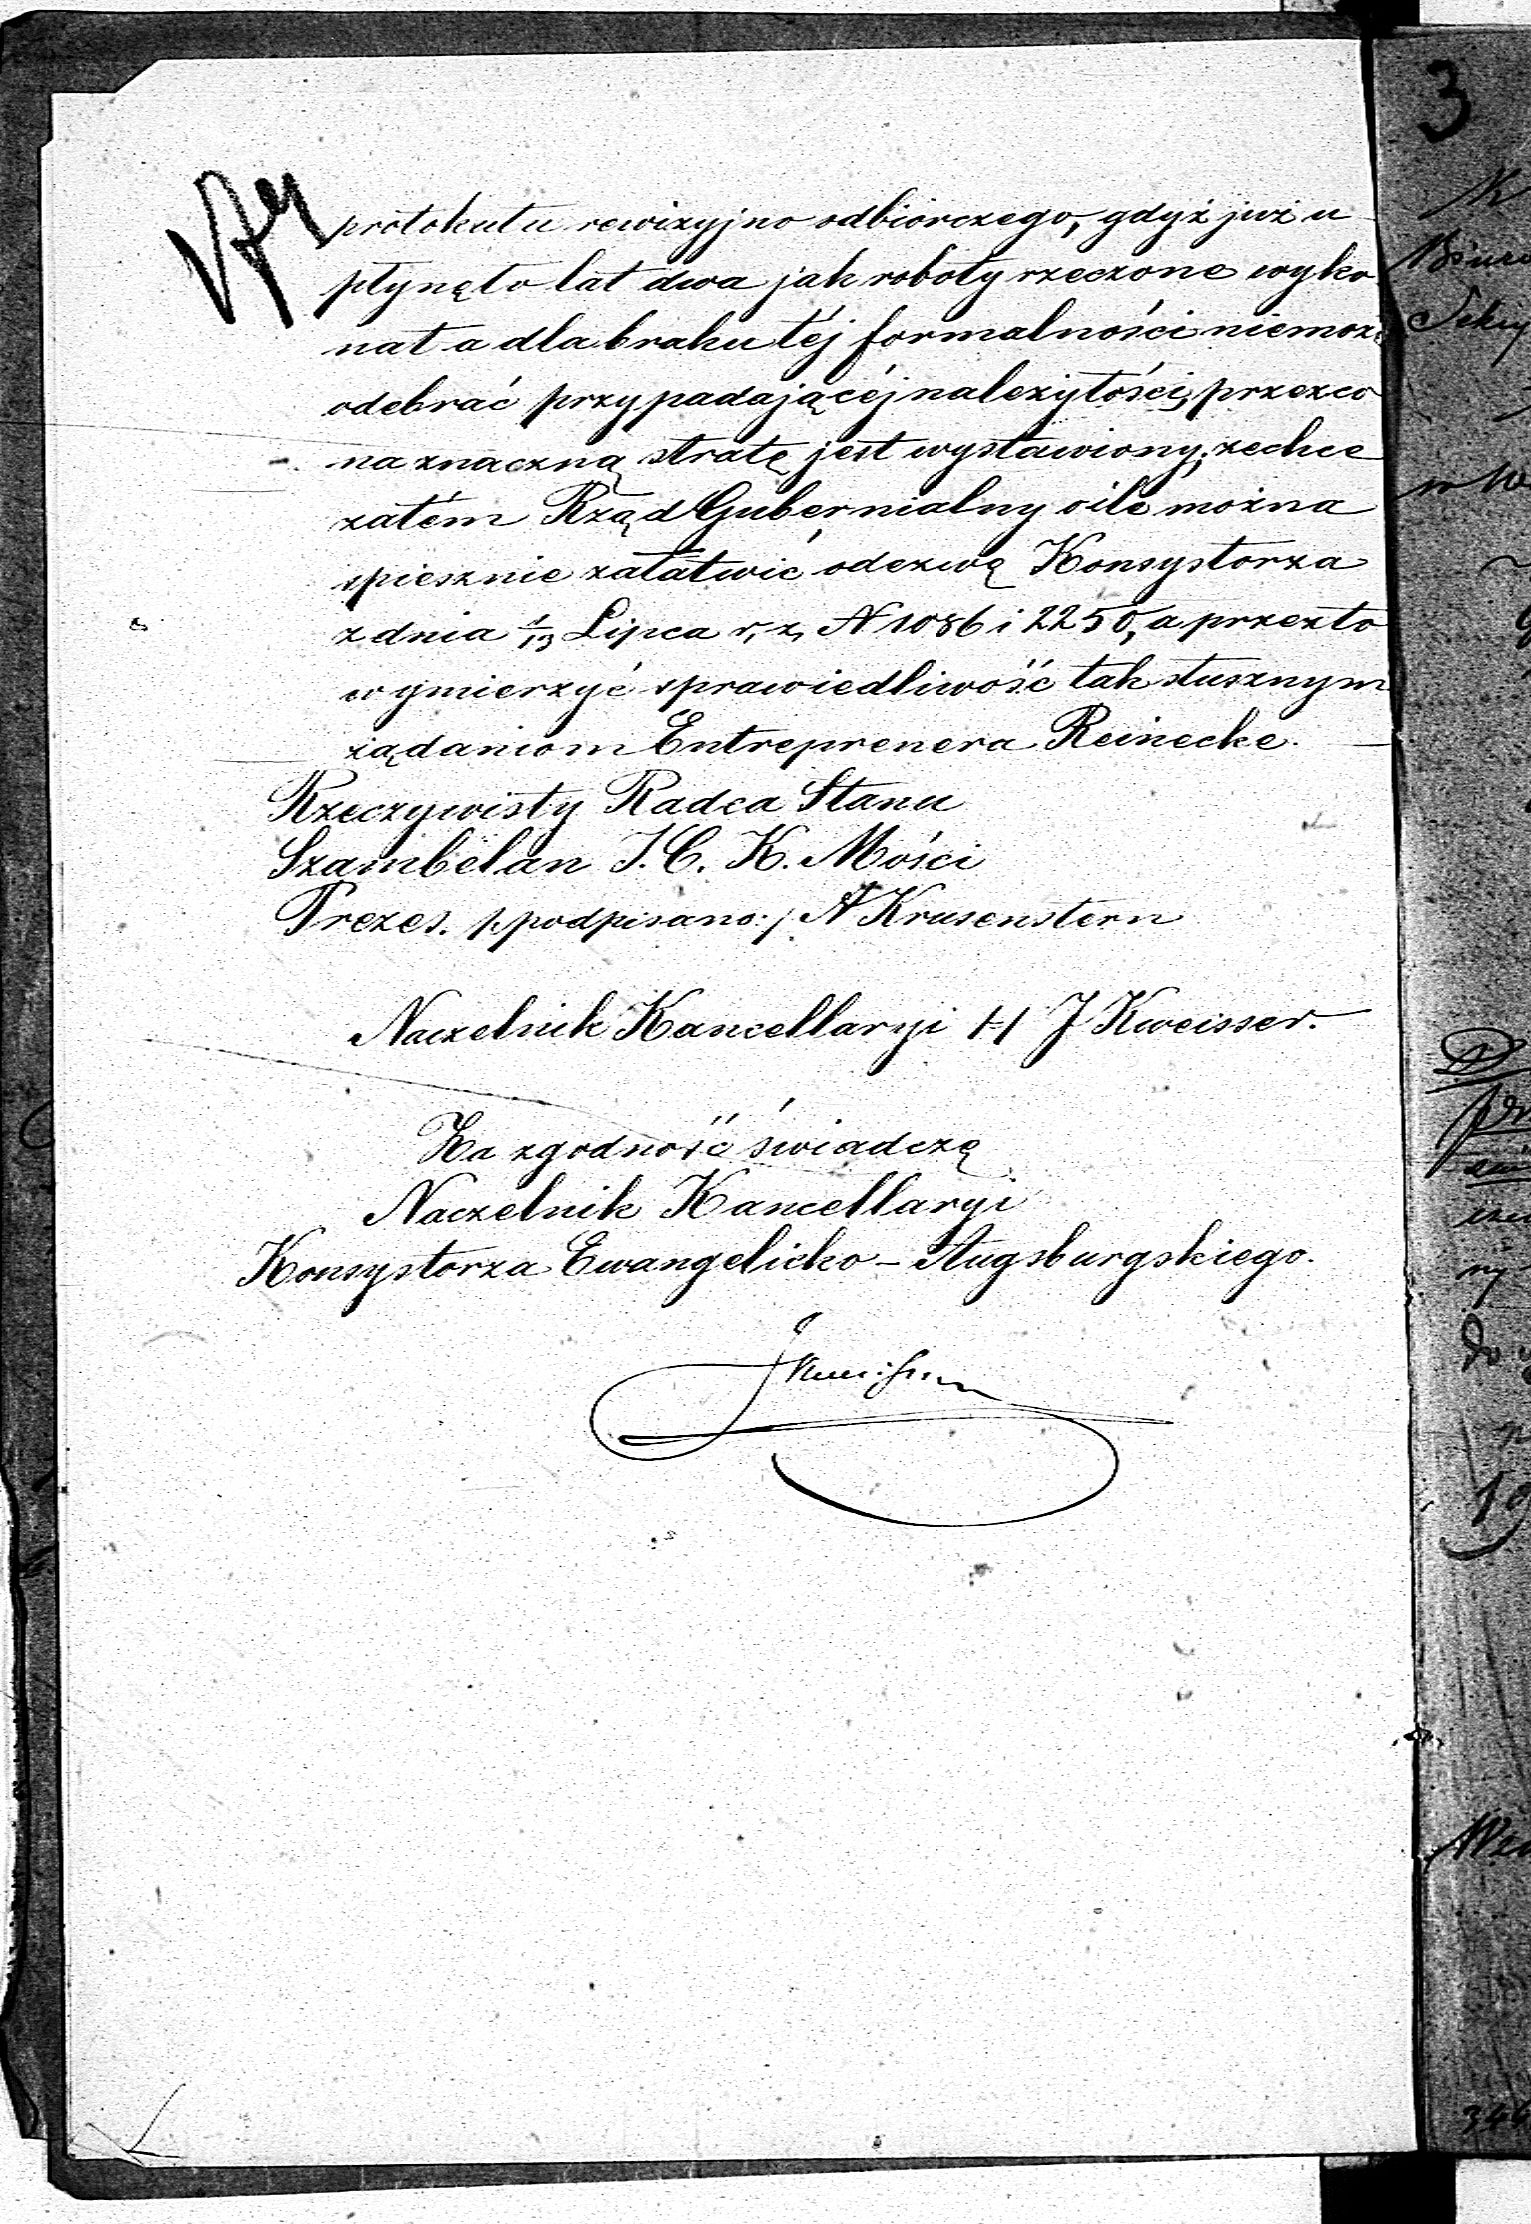 protokułu rewizyjno odbiorczego, gdyż już u
płynęło lat dwa jak roboty rzeczone wyko
nał a dla braku téj formalności niemoże
odebrać przypadającéj należytości, przezco
na znaczną stratę jest wystawiony; zechce
zatém Rząd Gubernialny o ile można
spiesznie załatwić odezwę Konsystorza
z dnia 1/13 Lipca r, z, N 1086 i 2250, a przezto
wymierzyć sprawiedliwość tak słusznym
żądaniom Entreprenera Reinecke. —
Rzeczywisty Radca Stanu
Szambelan J. C. K. Mości
Prezes. /:podpisano:/ A Krusenstern
Naczelnik Kancellaryi /-/ J Kweisser.
Za zgodność świadczę
Naczelnik Kancellaryi
Konsystorza Ewangelicko – Augsburgskiego.
3
Biuro